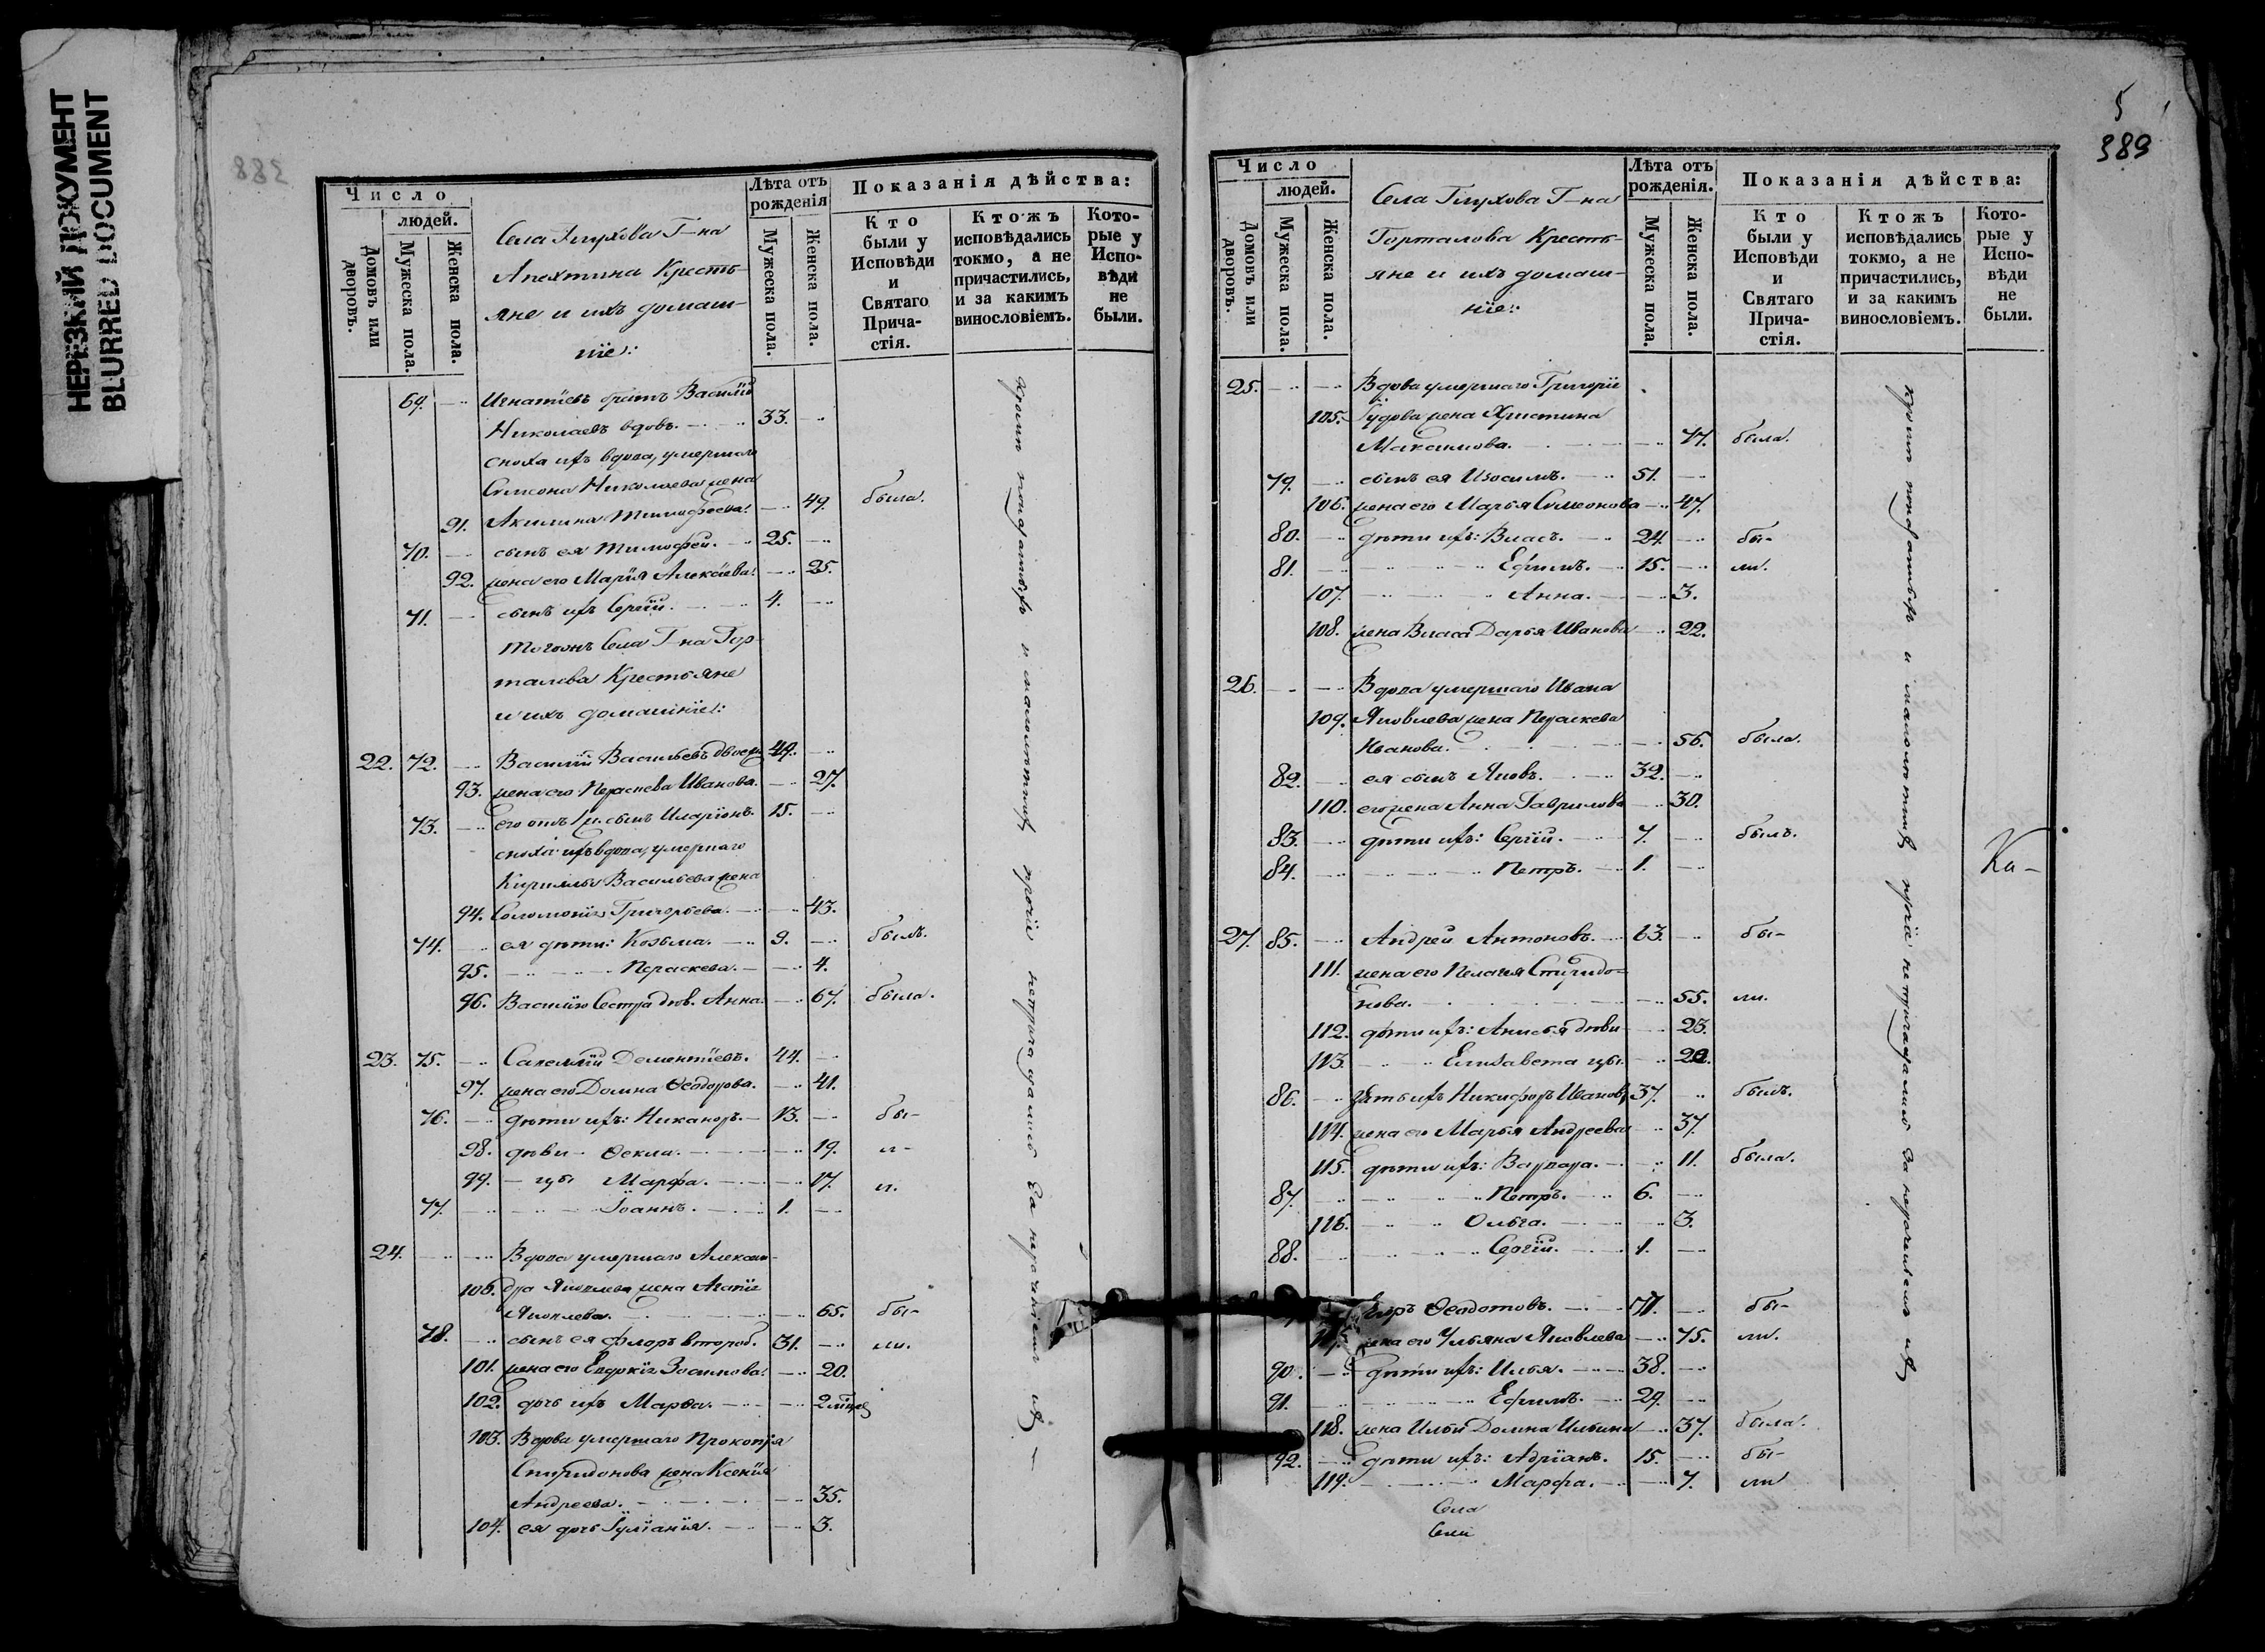 НЕРЕЗКИЙ ДОКУМЕНТ
BLURRED DOCUMENT
388
Число
людей.
Домовъ или дворовъ.
Мужеска пола.
Женска пола.
Села Глухова Г-на
Апехтина Кресть-
яне и ихъ домаш-
ніе:
Лѣта отъ рожденія
Мужеска пола.
Женска пола.
Показанія дѣйства:
Кто были у Исповѣди и Святаго Прича-стія.
Ктожъ исповѣдались токмо, а не причастились, и за какимъ винословіемъ.
Кото-рые у Испо-вѣди не были.
69. Игнатіевъ братъ Василій
Николаевъ вдовъ. 33.
сноха ихъ вдова, умершаго
Симеона Николаева жена
91. Акилина Тимофеева. 49. была.
70. сынъ ея Тимофей. 25.
92. жена его Марія Алексіева. 25.
71. сынъ ихъ Сергій. 4.
Тогожъ Села Г-на Гор-
талова Крестьяне
и ихъ домашніе:
22. 72. Василій Васильевъ двоеж. 49.
93. жена его Параскева Иванова. 27.
73. его отъ 1 ж. сынъ Иларіонъ. 15.
сноха ихъ вдова, умершаго
Кирилла Васильева жена
94. Соломонія Григорьева. 43.
74. ея дѣти: Козьма. 9. былъ.
95. Параскева. 4.
96. Василію Сестра дѣв. Анна. 67. была.
23. 75. Савелій Дементіевъ. 44.
97. жена его Домна Ѳеодорова. 41.
76. дѣти ихъ: Никаноръ. 13. бы-
98. дѣви- Ѳекла. 19. л-
99. - цы Марфа. 17. и.
77. Іоаннъ. 1.
24. Вдова умершаго Алексан-
100. дра Яковлева жена Агапія
Яковлева. 65. бы-
78. сынъ ея Флоръ второб. 31. ли.
101. жена его Евдокія Зосимова. 20.
102. дочь ихъ Марѳа. 2
103. Вдова умершаго Прокопія
Спиридонова жена Ксенія
Андреева. 35.
104. ея дочь Іуліанія. 3.
кромѣ подлѣтнихъ и малолѣтныхъ прочіе непричащались за нераченіемъ ихъ -
5
389
Число
людей.
Домовъ или дворовъ.
Мужеска пола.
Женска пола.
Села Глухова Г-на
Горталова Кресть-
яне и ихъ домаш-
ніе:
Лѣта отъ рожденія.
Мужеска пола.
Женска пола.
Показанія дѣйства:
Кто были у Исповѣди и Святаго Прича-стія.
Ктожъ исповѣдались токмо, а не причастились, и за какимъ винословіемъ.
Кото-рые у Испо-вѣди не были.
25. Вдова умершаго Григорія
105. жена Христина
Максимова. 77. была.
79. сынъ ея Изосимъ. 51.
106. жена его Марья Симеонова 47.
80. дѣти ихъ: Власъ. 24. бы-
81. Ефимъ. 15. ли.
107. Анна. 3.
108. жена Власа Дарья Иванова 22.
26. Вдова умершаго Ивана
109. Яковлева жена Параскева
Иванова. 56. была.
82. ея сынъ Яковъ. 32.
110. его жена Анна Гаврилова 30.
83. дѣти ихъ: Сергій. 7. былъ.
84. Петръ. 1.
27. 85. Андрей Антоновъ. 63. бы-
111. жена его Пелагея Спиридо-
нова. 55. ли.
112. дѣти ихъ: Анисья дѣви- 23.
113. Елизавета цы. 20.
86. Зять ихъ Никифоръ Ивановъ 37. былъ.
114. жена его Марья Андреева 37.
115. дѣти ихъ: Варвара. 11. была.
87. Петръ. 6.
116. Ольга. 3.
88. Сергій. 1.
Ѳеодотовъ. 77. бы-
117. жена его Ульяна Яковлева 75. ли.
90. дѣти ихъ: Илья. 38.
91. Ефимъ. 29.
118. жена Ильи Домна Ильина 37. была.
92. дѣти ихъ: Адріанъ. 15. бы-
119. Марфа. 7. ли
Села
Села
кромѣ подлѣтнихъ и малолѣтныхъ прочіе непричащались за нераченіемъ ихъ
Ка-